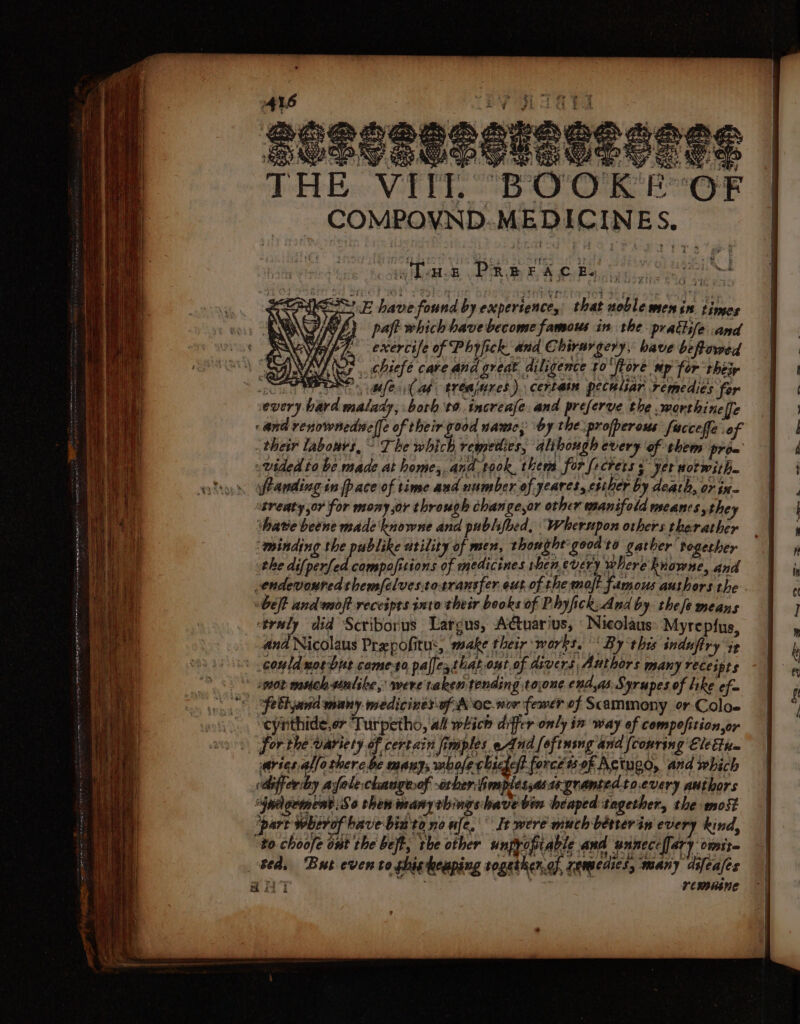 416
THE VIII. BOOKE OF
COMPOVND MEDICINES.
THE PREFACE.
WE have found by experience, that noble men in times
past which have become famous in the practise and
exercise of Physick and Chirurgery, have bestowed
chiefe care and great diligence to store up for their
use (as treasures) certain peculiar remedies for
every hard malady, both to increase and preserve the worthinesse
and renownednesse of their good name, by the prosperous successe of
their labours, The which remedies, although every of them pro-
vided to be made at home, and took them for secrets; yet notwith-
standing in space of time and number of yeares, either by death, or in-
treaty, or for mony, or through change, or other manifold meanes, they
have beene made knowne and published, Wherupon others the rather
minding the publike utility of men, thought good to gather together
the dispersed compositions of medicines then every where knowne, and
endevoured themselves to transfer out of the most famous authors the
best and most receipts into their books of Physick. And by these means
truly did Scriborus Largus, Actuarius, Nicolaus Myrepsus,
and Nicolaus Præpositus, make their works. By this industry it
could not but come to passe, that out of divers Authors many receipts
not much unlike, were taken tending to one end, as Syrupes of like ef-
fect, and many medicines of Aloe nor fewer of Scammony or Colo-
cynthide, or Turpetho, all which differ only in way of composition, or
for the variety of certain simples. And softning and scouring Electu-
aries also there be many, whose chiefest force is of Acrugo, and which
differ by a sole change of other simples, as is granted to every authors
judgement. So then many things have bin heaped together, the most
part wherof have bin to no use, It were much better in every kind,
to choose out the best, the other unprofitable and unnecessary omit-
ted. But even to this heaping together of remedies, many diseases
remaine